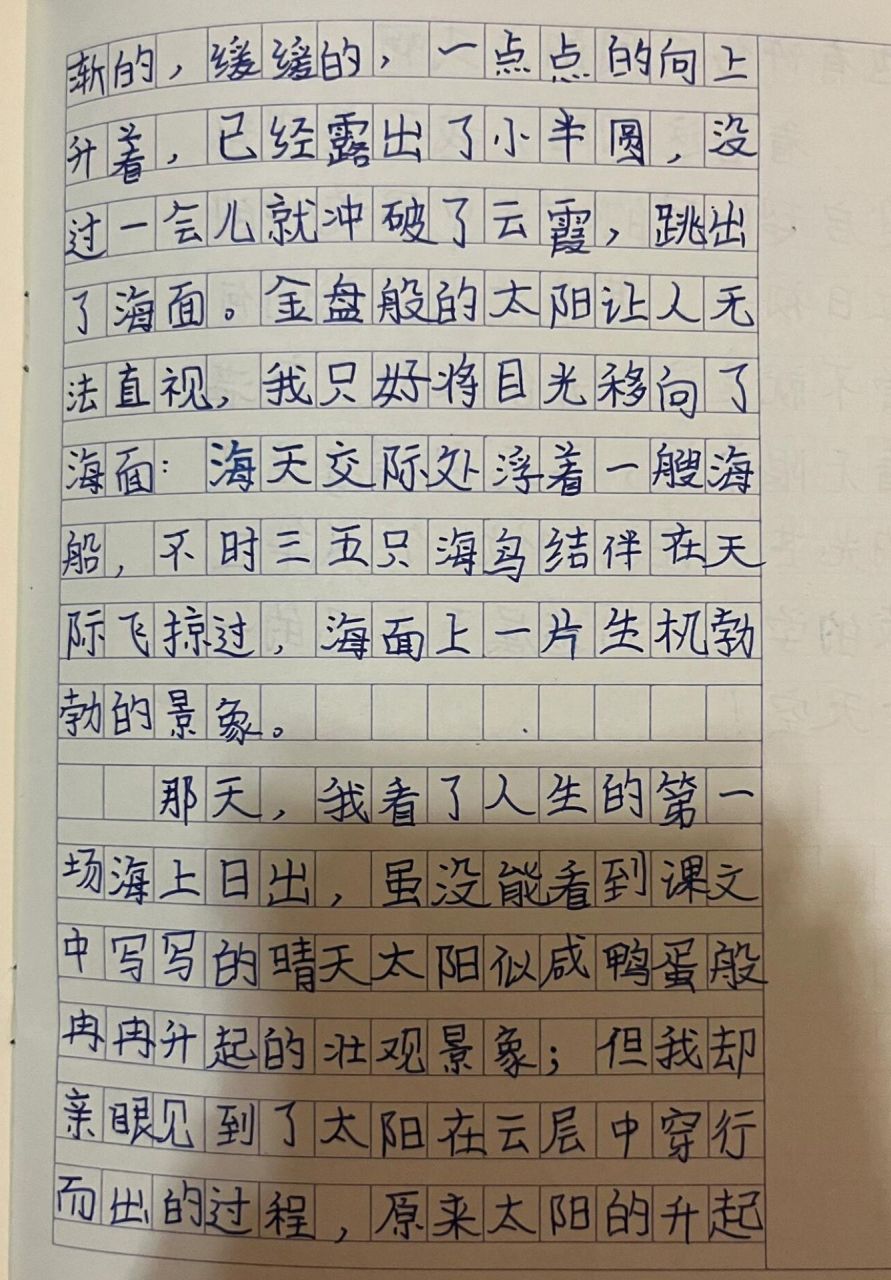 渐的，缓缓的，一点点的向上
升着，已经露出了小半圆，没
过一会儿就冲破了云霞，跳出
了海面。金盘般的太阳让人无
法直视，我只好将目光移向了
海面：海天交际处浮着一艘海
船，不时三五只海鸟结伴在天
际飞掠过，海面上一片生机勃
勃的景象。
那天，我看了人生的第一
场海上日出，虽没能看到课文
中写写的晴天太阳似咸鸭蛋般
冉冉升起的壮观景象；但我却
亲眼见到了太阳在云层中穿行
而出的过程，原来太阳的升起